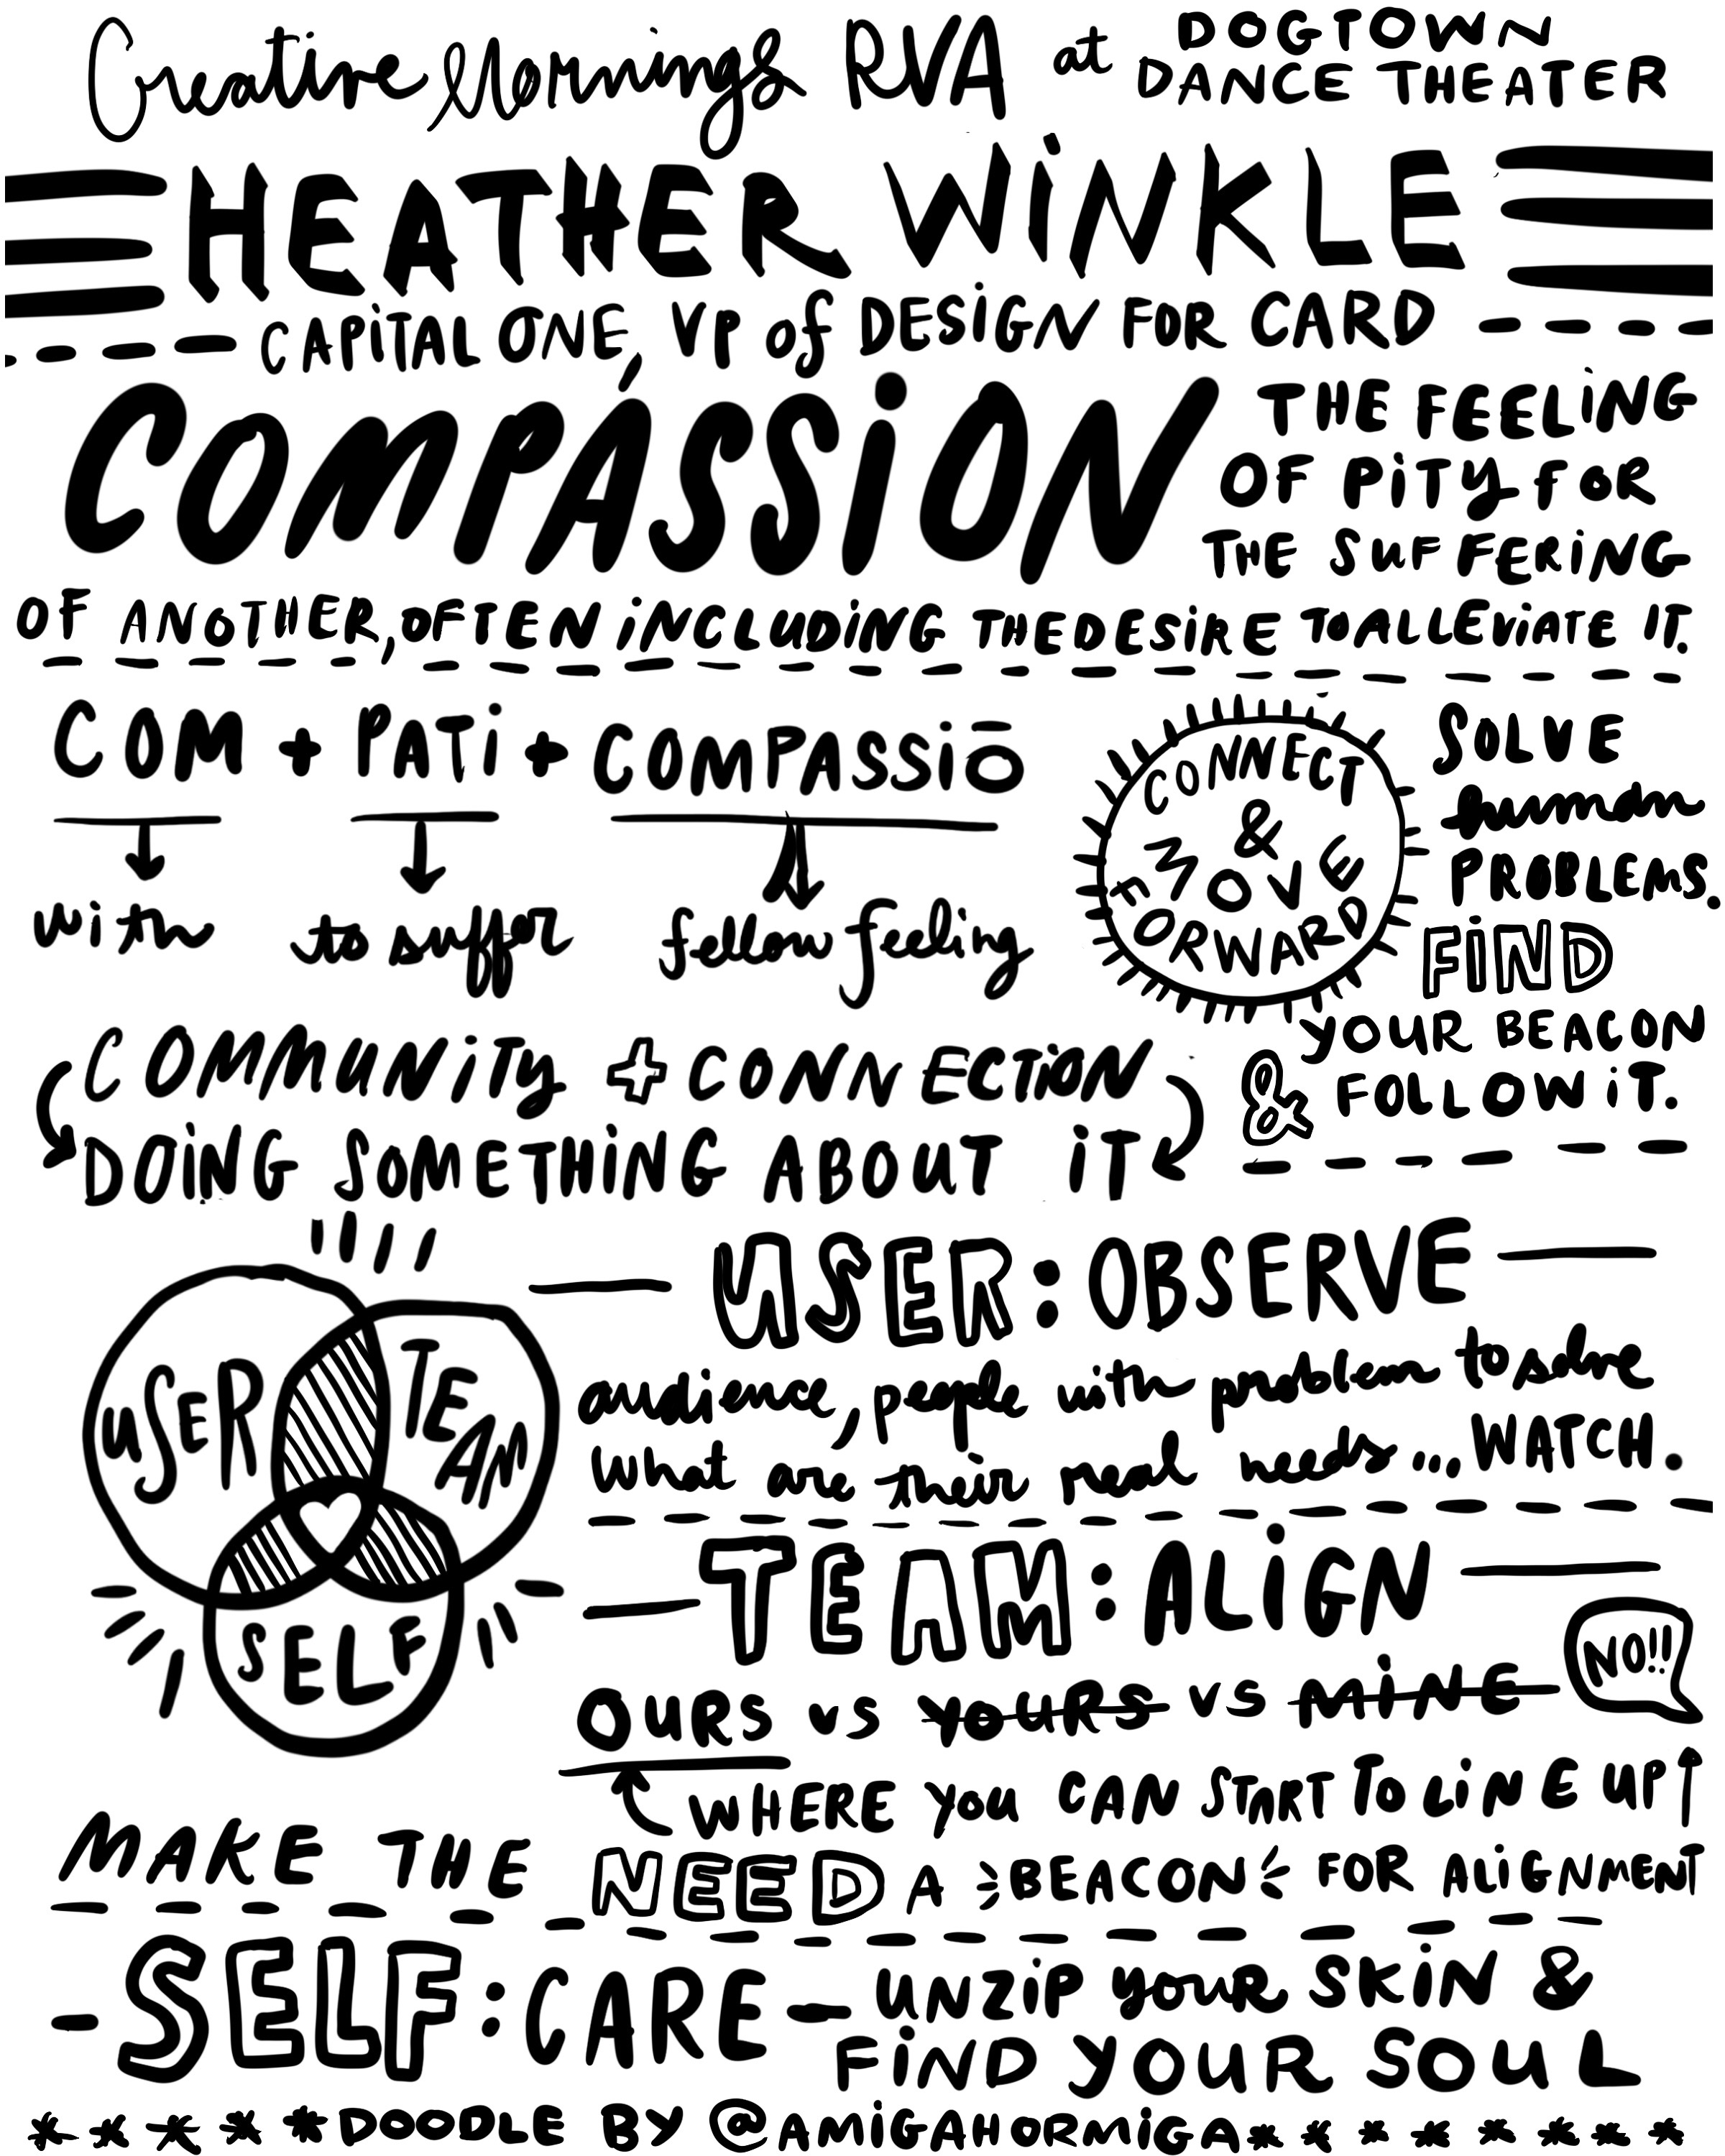 Creative Mornings RVA at DOGTOWN DANCE THEATER
HEATHER WiNKLE
CAPiTAL ONE, VP of DESiGN FOR CARD
COMPASSiON THE FEELiNG
OF PiTy fOR
THE SuFFERiNG
OF ANOTHER, OFTEN iNCLUDiNG THE DESiRE TO ALLEViATE IT.
COM + PATi + COMPASSiŌ
with to suffer fellow feeling
CONNECT
&
MOVE
FORWARD
SOLVE
human
PROBLEMS.
FiND
yOUR BEACON
& FOLLOW iT.
COMMUNiTy + CONNECTiON
DOiNG SOMETHiNG ABOUT iT
uSER TEAM
SELF
USER: OBSERVE
audience, people with problem to solve
what are their real needs... WATCH.
TEAM: ALiGN
OURS vs YOURS vs MiNE NO!!
WHERE you CAN START TO LiNE UP
MAKE THE NEED A BEACON FOR ALiGNMENT
- SELF: CARE - UNZiP your SKiN &
FiND YOUR SOUL
* * * * * DOODLE BY @AMiGAHORMiGA * * * * * * * *